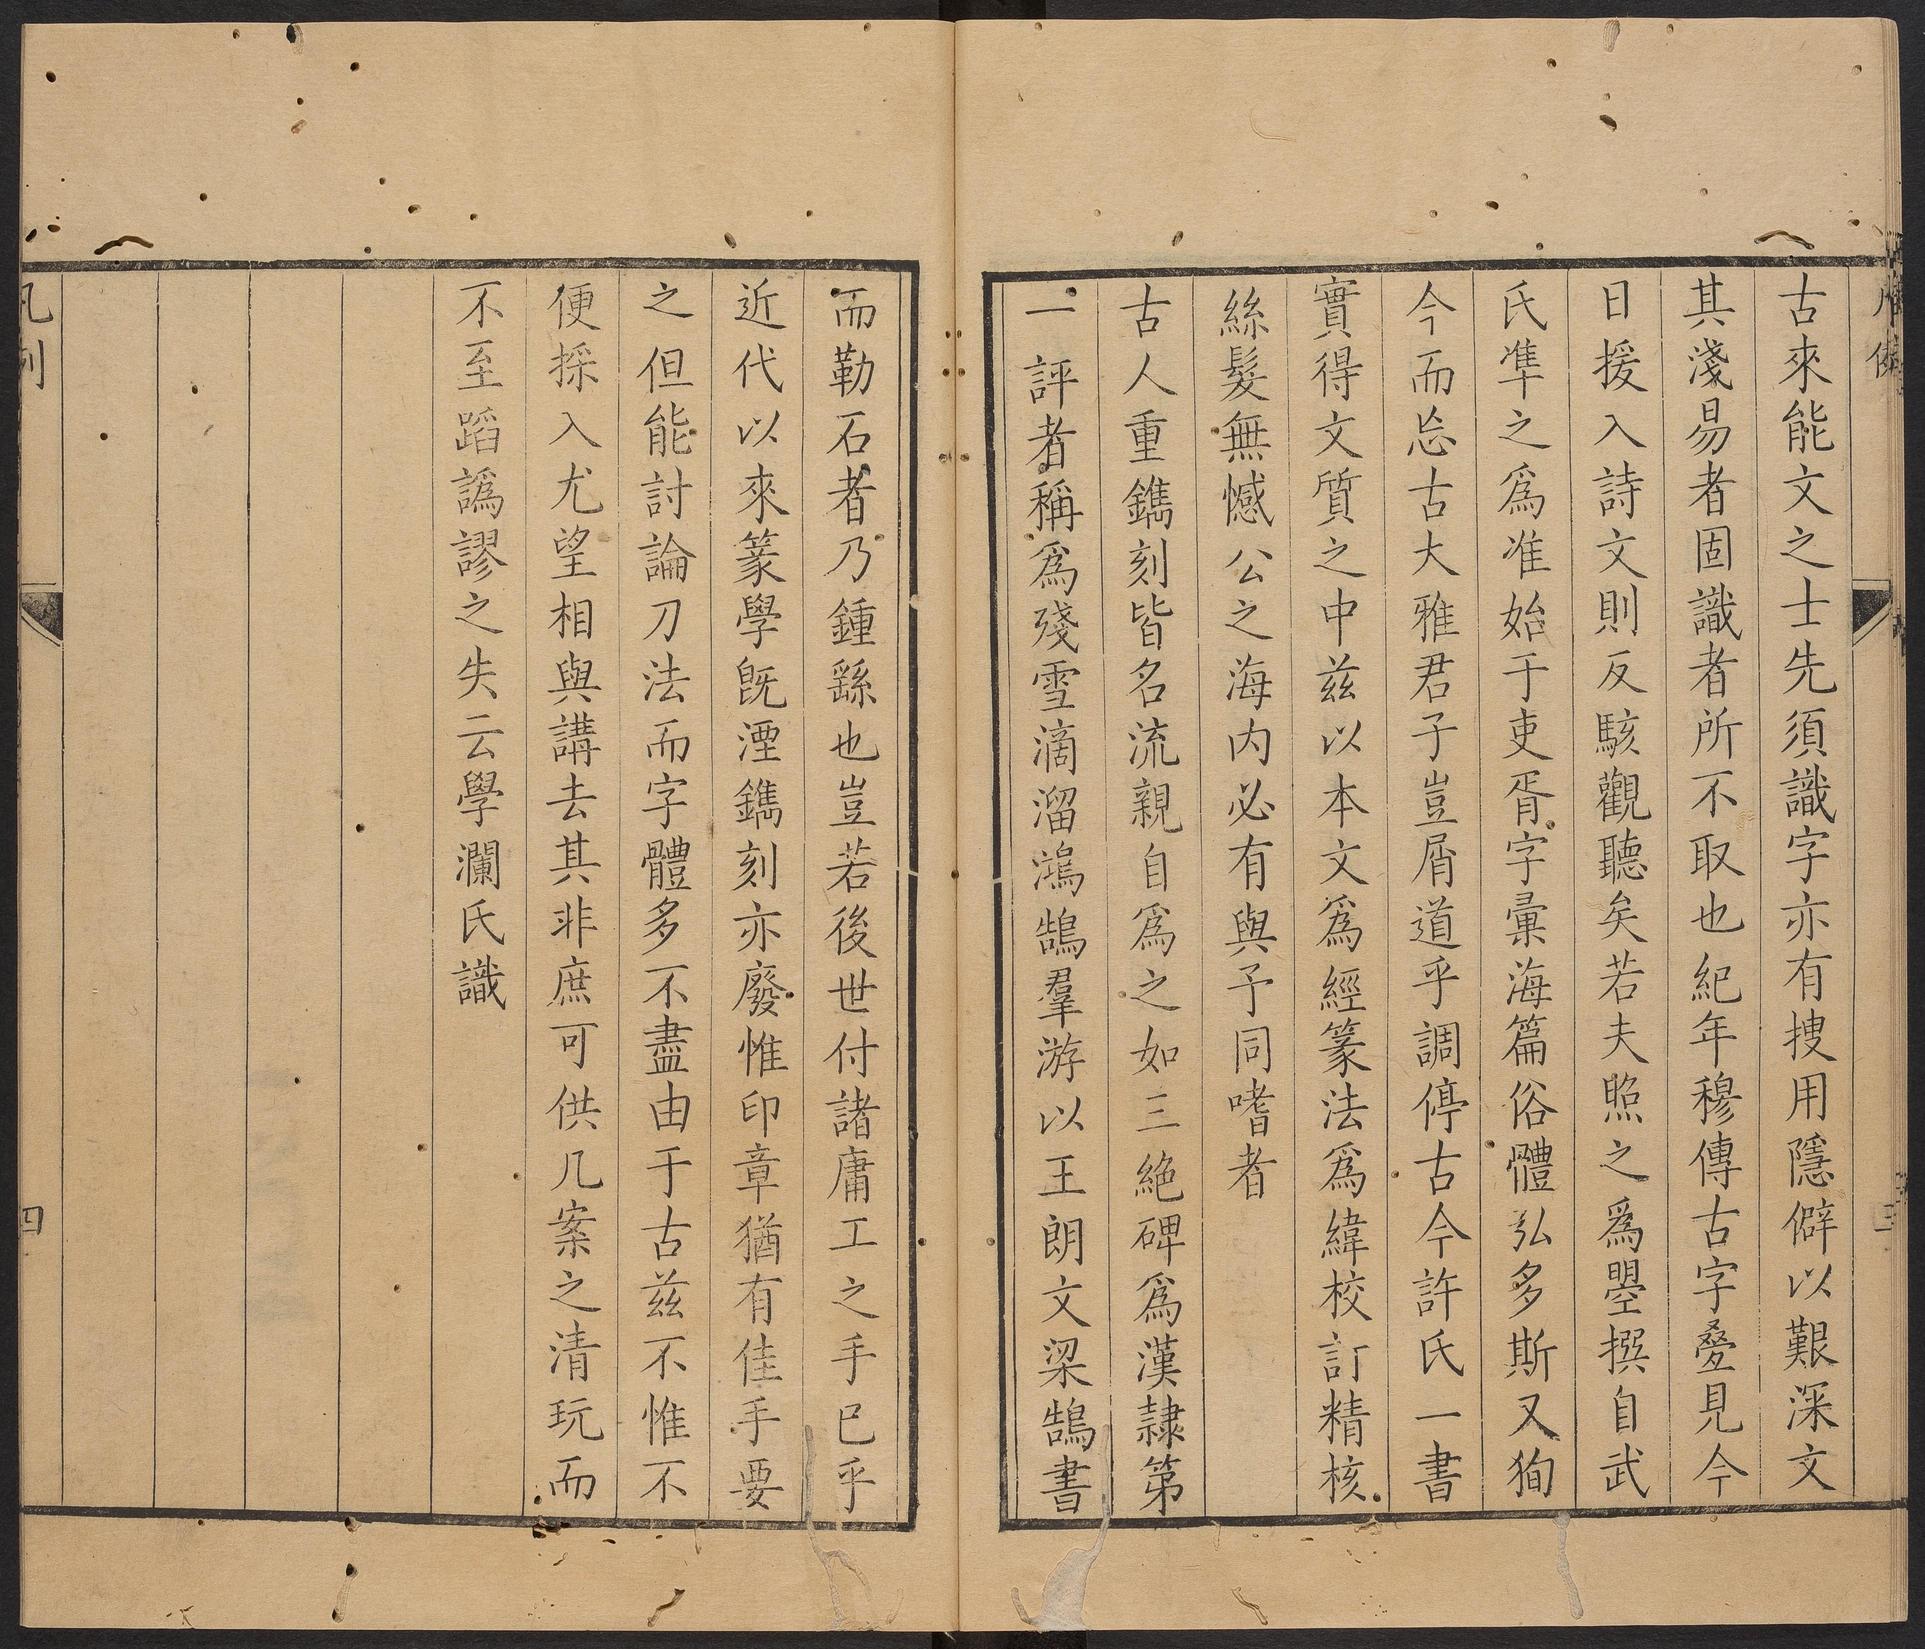 古來能文之士先須識字亦有搜用隱僻以艱深文
其淺易者固識者所不取也紀年穆傳古字疊見今
日援入詩文則反駭觀聽矣若夫照之爲曌撰自武
氏凖之爲准始于吏胥字彙海篇俗體弘多斯又狥
今而忘古大雅君子豈屑道乎調停古今許氏一書
實得文質之中兹以本文爲經篆法爲緯校訂精核
絲髮無憾公之海内必有與予同嗜者
古人重鐫刻皆名流親自爲之如三絶碑爲漢隷第
一評者稱爲殘雪滴溜鴻鵠羣游以王朗文梁鵠書
而勒石者乃鍾繇也豈若後世付諸庸工之手已乎
近代以來篆學旣湮鐫刻亦廢惟印章猶有佳手要
之但能討論刀法而字體多不盡由于古兹不惟不
便採入尤望相與講去其非庶可供几案之清玩而
不至蹈譌謬之失云學瀾氏識
凡例
四